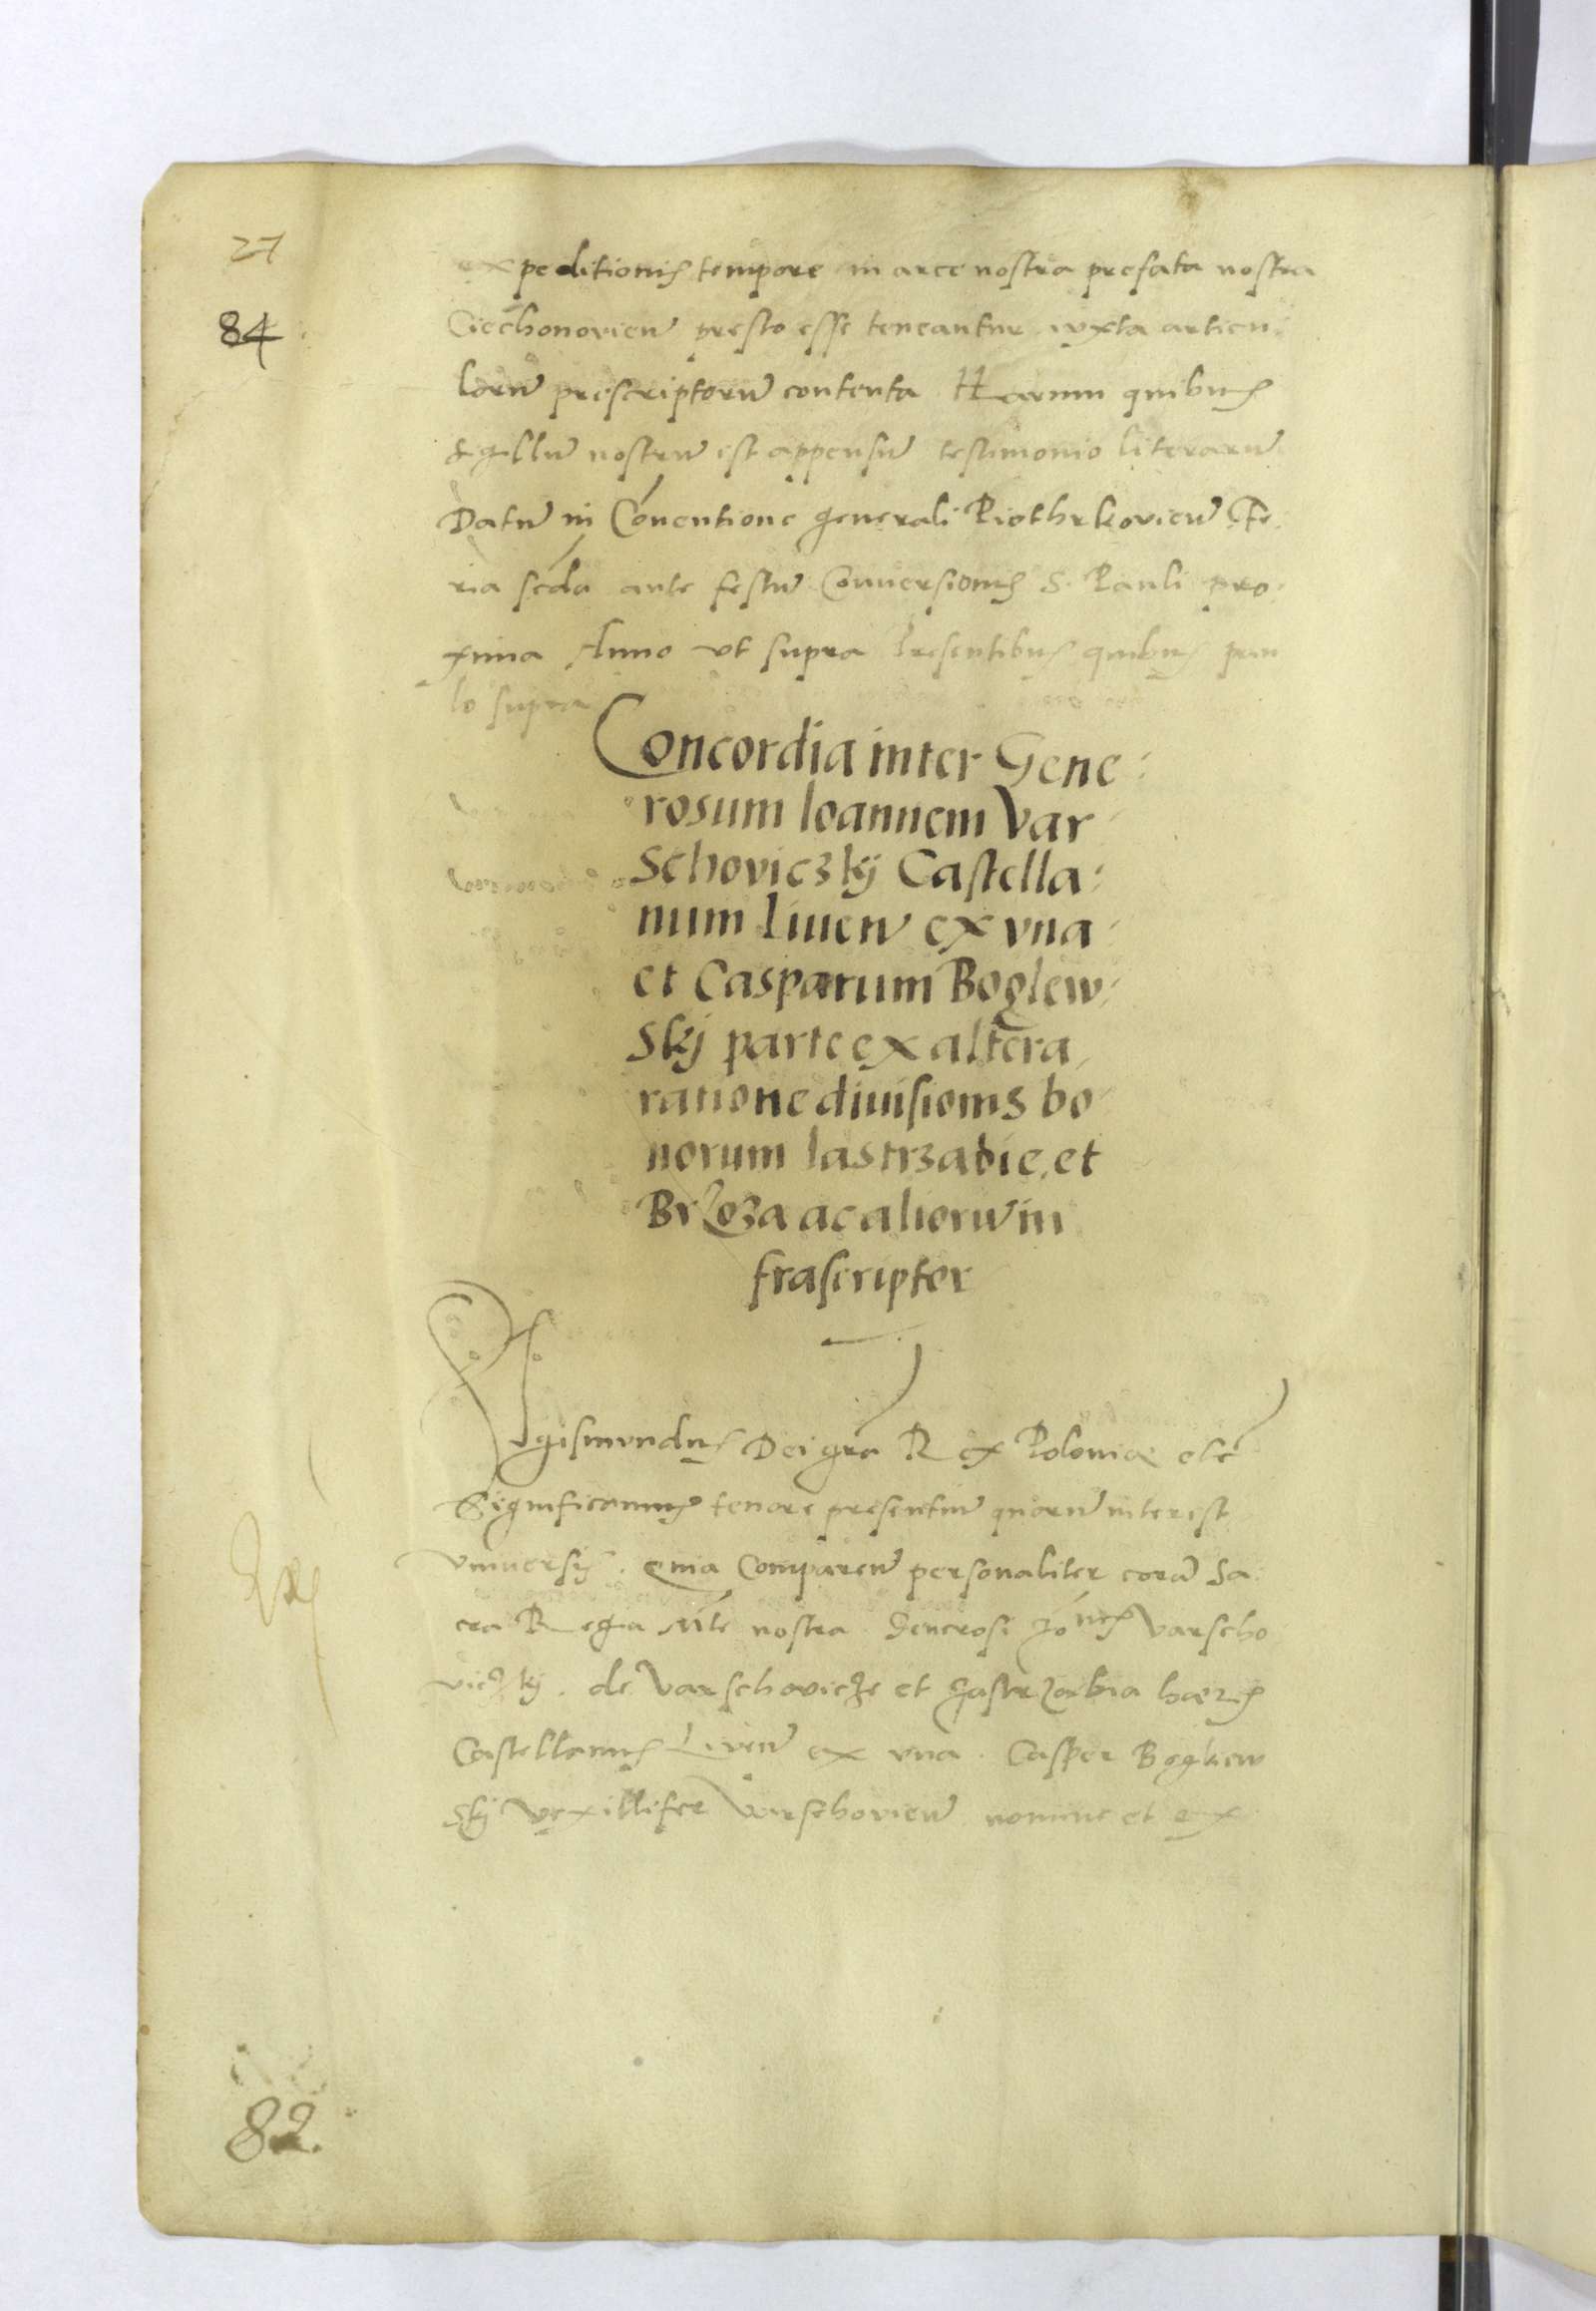 27
84
expeditionis tempore in arce nostra prefata nostra
Ciechonovieñ presto esse teneantur iuxta articu
lorũ prescriptorũ contenta Harum quibus
Sigillũ nostrũ est appensũ testimonio literarũ
Datũ in Conventione generali Piothrkovieñ Fe
ria scđa ante festũ Conuersionis S. Pauli pro
xima Anno vt supra Presentibus quibus pau
lo supra
Concordia inter Gene:
rosum Ioannem Var
Schoviczkÿ Castella:
num Liueñ ex vna
et Casparum Boglew:
Skÿ parte ex altera
ratione diuisionis bo
norum Iastrzabie, et
Brzoza ac aliorũ in
frascriptor
Sigismundus Dei gra Rex Poloniæ etc
Significamus tenore presentiũ quorũ interest
vniuersis. quia Compareñ personaliter corã Sa
cra Regia Mte nostra Generosi Ioñes Varscho
viczkÿ. de Varschovicze et Jastrzabia hæres
Castellanus Liveñ ex vna. Casper Boglew
Skÿ Vexillifer Varschovieñ nomine et ex
82.